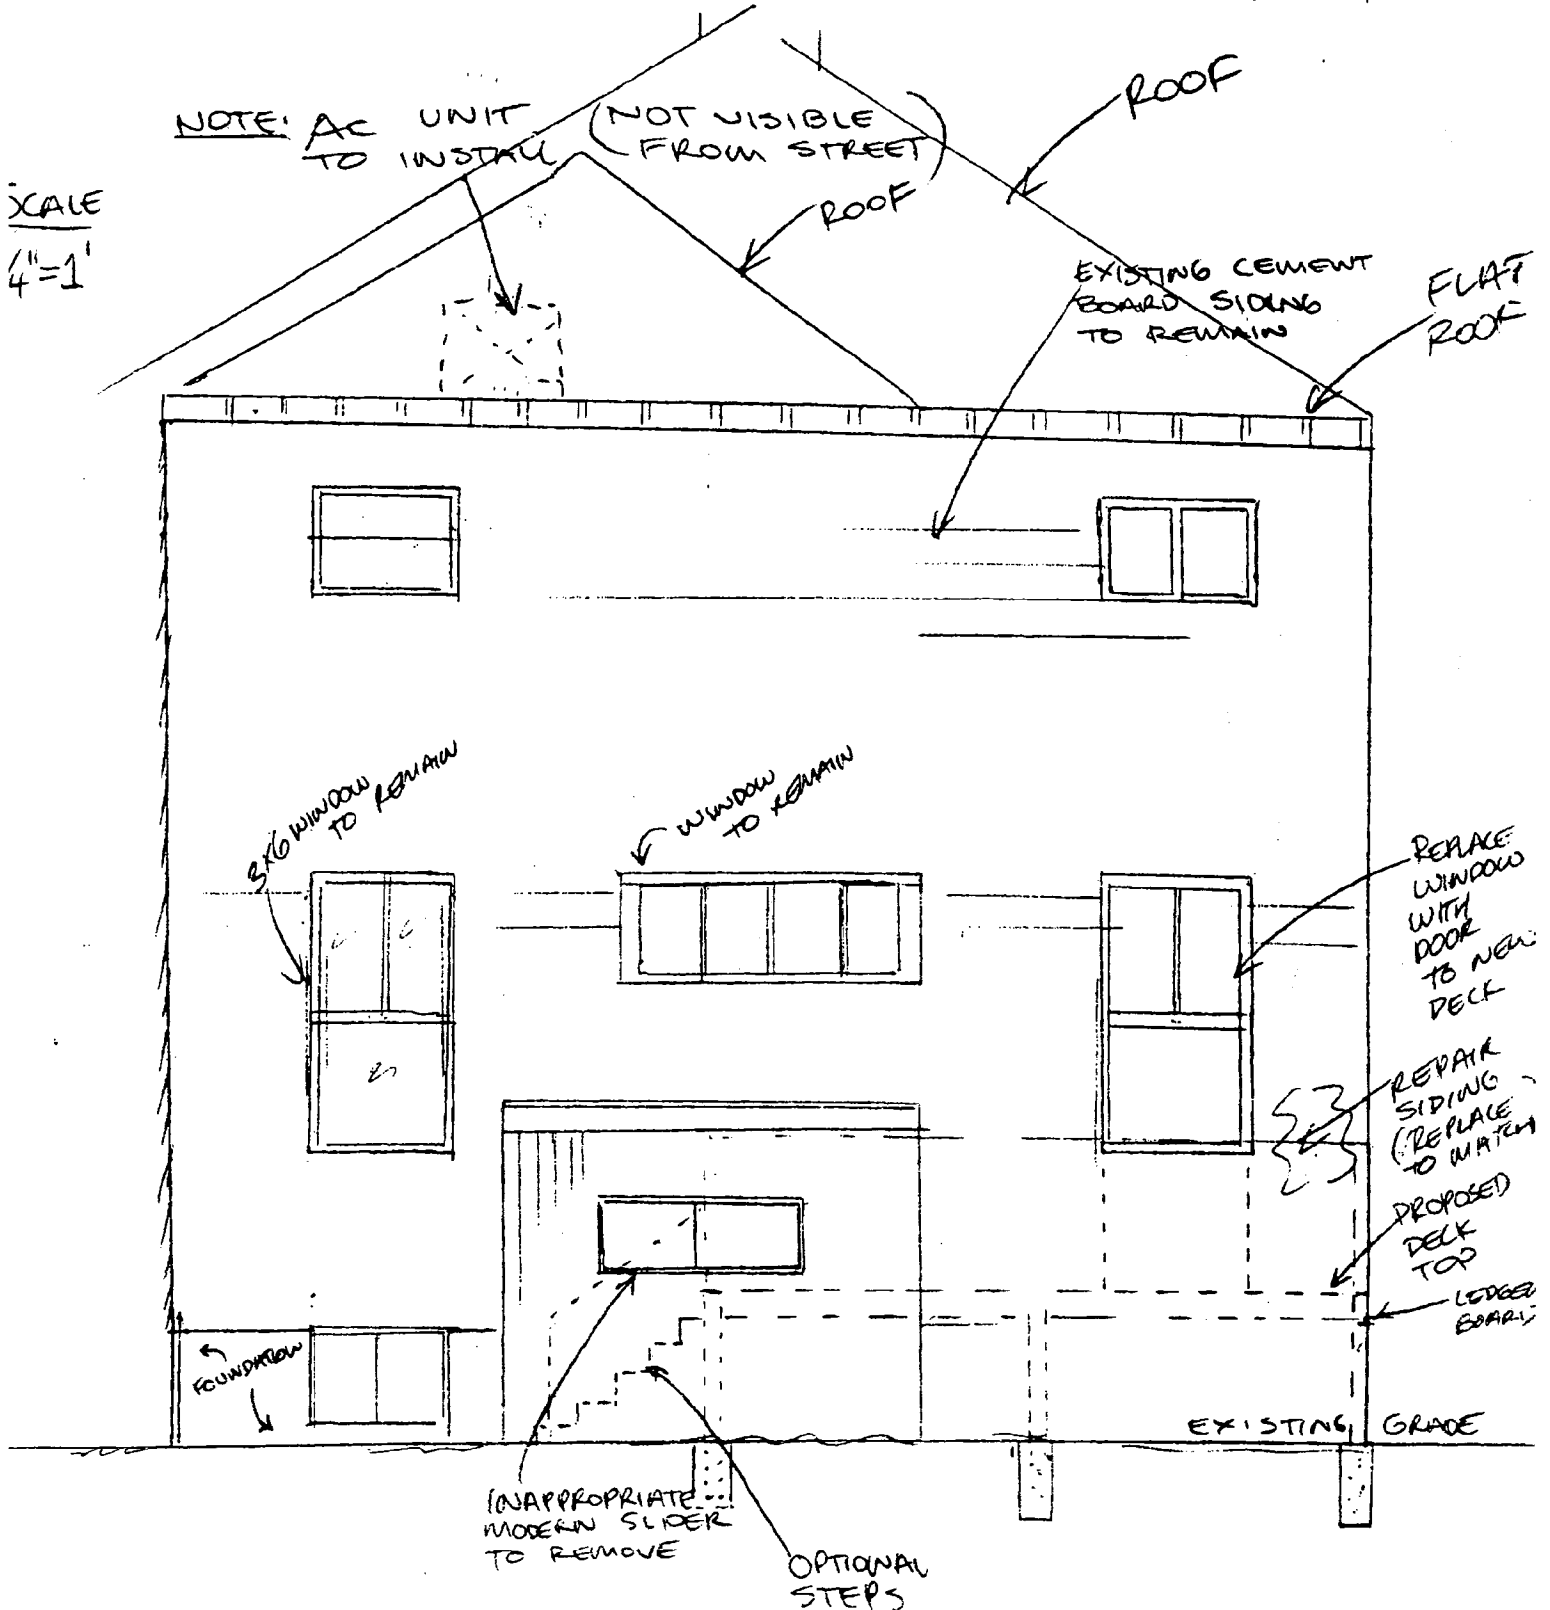 NOTE: AC UNIT
TO INSTALL
(NOT VISIBLE
FROM STREET)
ROOF
ROOF
SCALE
/4"=1'
EXISTING CEMENT
BOARD SIDING
TO REMAIN
FLAT
ROOF
3x6 WINDOW
TO REMAIN
WINDOW
TO REMAIN
REPLACE
WINDOW
WITH
DOOR
TO NEW
DECK
REPAIR
SIDING
(REPLACE
TO MATCH
PROPOSED
DECK
TOP
LEDGER
BOARD
FOUNDATION
EXISTING GRADE
INAPPROPRIATE
MODERN SLIDER
TO REMOVE
OPTIONAL
STEPS